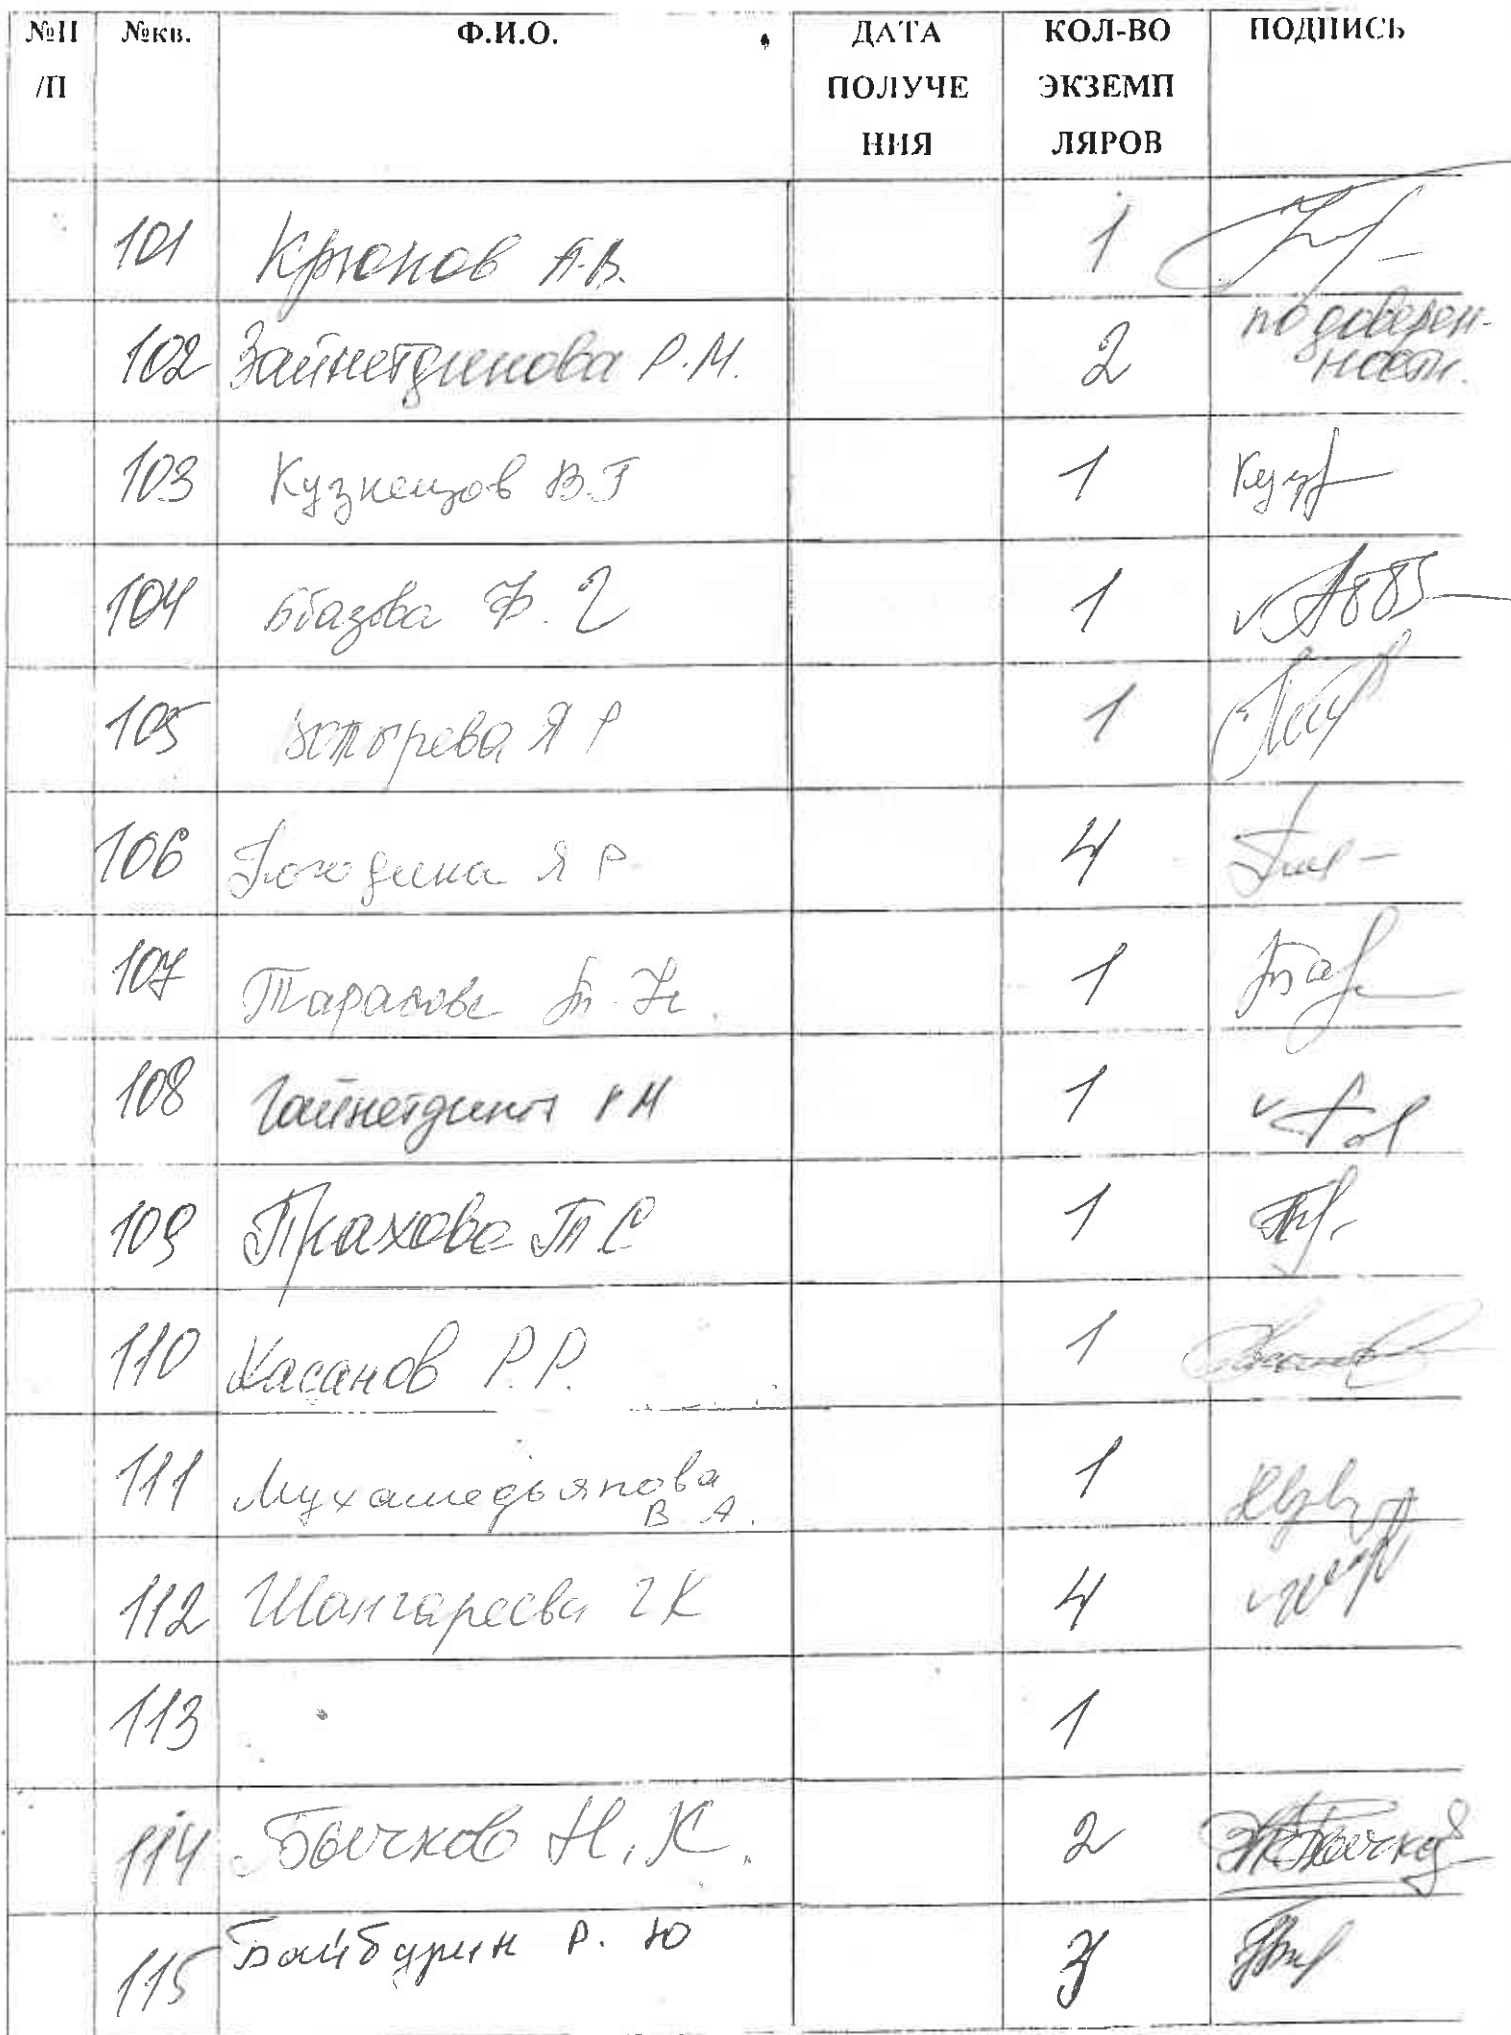 №П/П №кв. Ф.И.О. ДАТА ПОЛУЧЕНИЯ КОЛ-ВО ЭКЗЕМПЛЯРОВ ПОДПИСЬ
101 Крюков А.В. 1
102 Зайнетдинова Р.М. 2 по доверен-
ности.
103 Кузнецов В.Г 1
104 Ф. Г 1
105 Я Р 1
106 Я Р. 4
107 Тарасова 1
108 1
109 Плахова Т С 1
110 Хасанов Р.Р. 1
111 Мухамедьянова 1
В А.
112 Шангареева Г К 4
113 1
114 Бычков Н.К. 2
115 Байбурин Р. Ю 3